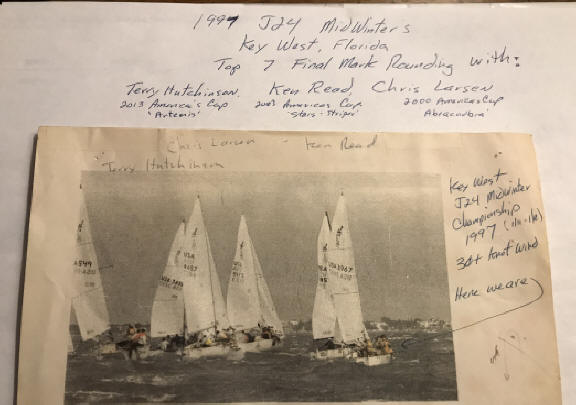 1997 J24 MidWinters
Key West, Florida
Top 7 Final Mark Rounding with:
Terry Hutchinson, Ken Read, Chris Larsen
2013 America's Cup 2003 Americas Cup 2000 Americas Cup
"Artemis" "Stars & Stripes"
Chris Larsen - Ken Read
Terry Hutchinson
Key West
J24 Midwinter
Championship
1997
30+ knot wind
Here we are
USA
USA